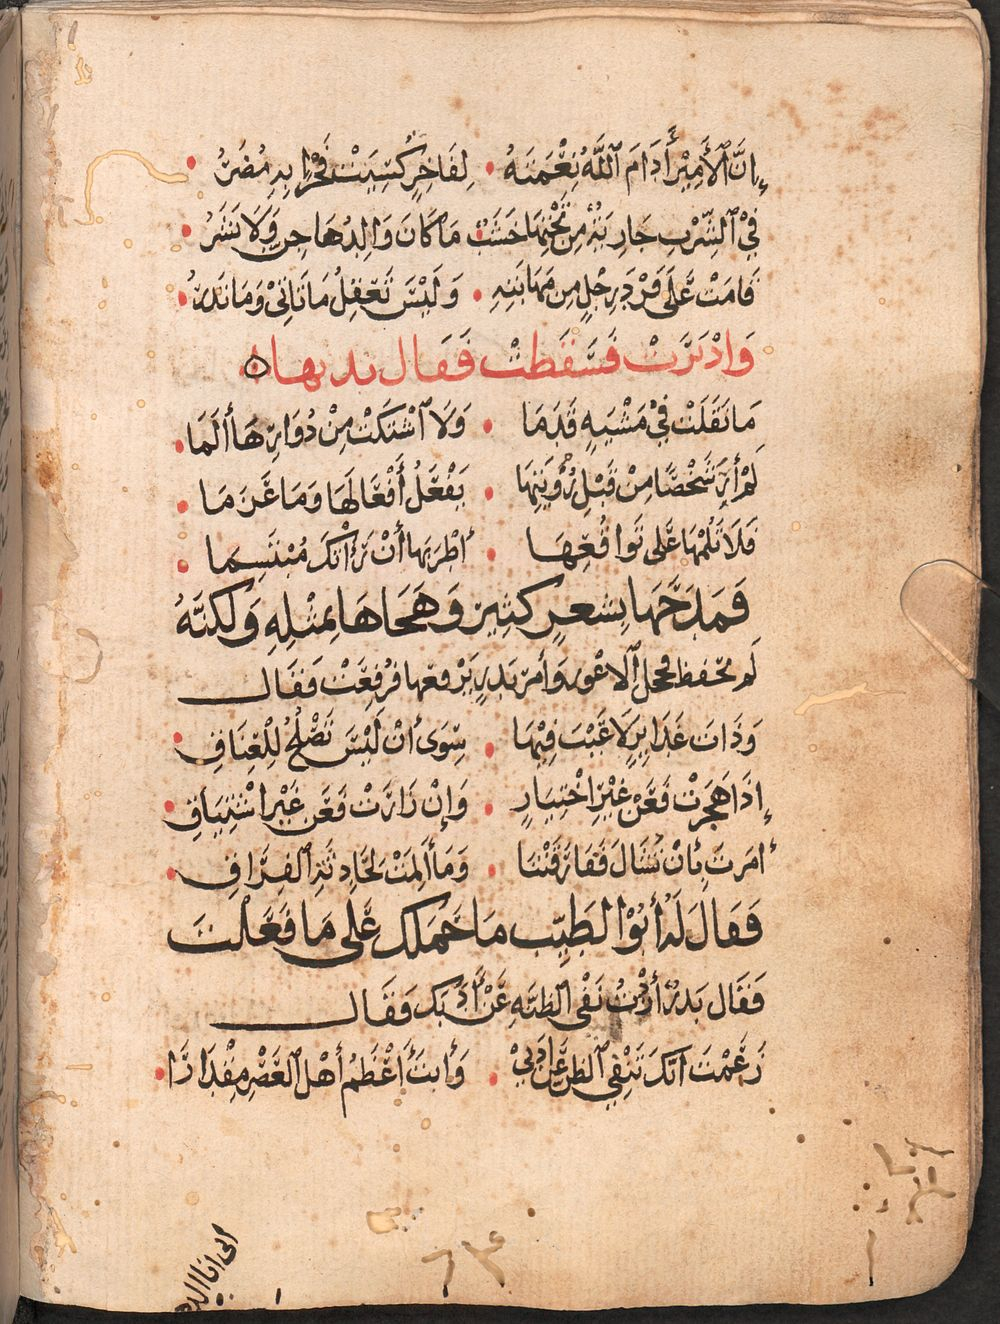 إِنَّ ٱلأَمِيْرَ أَدَامَ ٱللَّهُ نِعْمَتَهُ • لِفَاخِرٍ كُسِيَتْ فَخْرًا بِهِ مُضَرُ •
فِيْ ٱلشَّرْبِ جَارِيَةٌ مِنْ تَحْتِهَا خَشَبٌ • مَا كَانَ وَالِدُهَا جِنٌ وَلَا بَشَرُ •
قَامَتْ عَلَى فَرْدِ رِجْلٍ مِن مَهَابَتِهِ • وَلَيْسَ تَعْقِلُ مَا تَأْتِيْ وَمَا تَذَرُ •
وَادْبَرَتْ فَسَقَطَتْ فَقَالَ بَدِيهًا
مَا نَقَلَتْ فِيْ مَشْيَةٍ قَدَمَا • وَلَا ٱشْتَكَتْ مِنْ دُوَارِهَا أَلَمَا •
لَمْ أَرَ شَخْصًا مِنْ قَبْلِ رُؤْيَتِهَا • يَفْعَلُ أَفْعَالَهَا وَمَا عَزَمَا •
فَلَا تَلُمْهَا عَلَى تَوَاقُعِهَا • أطْرَبَهَا أَنْ رَأتْكَ مُبْتَسِمَا •
فَمَدَحَهَا بِشِعْرٍ كَثِيْرٍ وَهَجَاهَا بِمِثْلِهِ وَلَكِنَّهُ
لَم يحْفظ فخجل الاعْور وَأمر بَدر بِرَفْعِهَا فَرُفِعَتْ فَقَالَ
وَذَاتَ غَدَائِرٍ لَا عَيْبَ فِيْهَا • سِوَى أَنْ لَيْسَ تَصْلُحُ لِلْعِنَاقِ •
إِذَا هَجَرَتْ فَعَنْ غَيْرِ اخْتِيَارٍ • وَإِنْ زَارَتْ فَعَن غَيْرِ اشْتِيَاقِ •
أمَرتَ بِأنْ تُشَالَ فَفَارَقَتْنَا • وَمَا أَلِمَتْ لِحَادِثَةِ ٱلفِرَاقِ •
فَقَالَ لَهُ أَبُوْ الطَيِّبِ مَا حَمَلَكَ عَلَى مَا فَعَلْتَ
فَقَالَ بَدْرٌ أَرَدْتُ نَفْيَ ٱلظِنَّةِ عَنْ أَدَبِكَ فَقَالَ
زَعَمْتَ أنَّكَ تَنْفِي ٱلظَنَّ عَنْ أَدَبِيْ • وَأَنتَ أَعْظَمُ أَهْلِ ٱلعَصْرِ مِقْدَارَا •